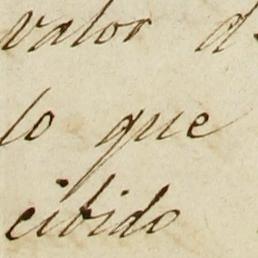 valor d
lo que
cibido